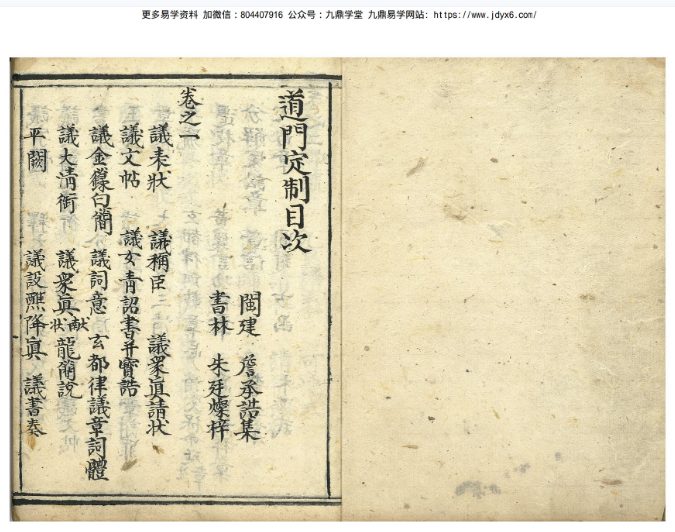 更多易学资料 加微信：804407916 公众号：九鼎学堂 九鼎易学网站：https://www.jdyx6.com/
道門定制目次
閩建 詹承誥集
書林 朱廷燦梓
卷之一
議表狀 議稱臣 議衆眞請狀
議文帖 議女青詔書并寶誥
議金鐶白簡 議詞意 玄都律議章詞體
議大清銜 議衆眞獻狀 龍簡說
平闕 議設醮降眞 議書奏